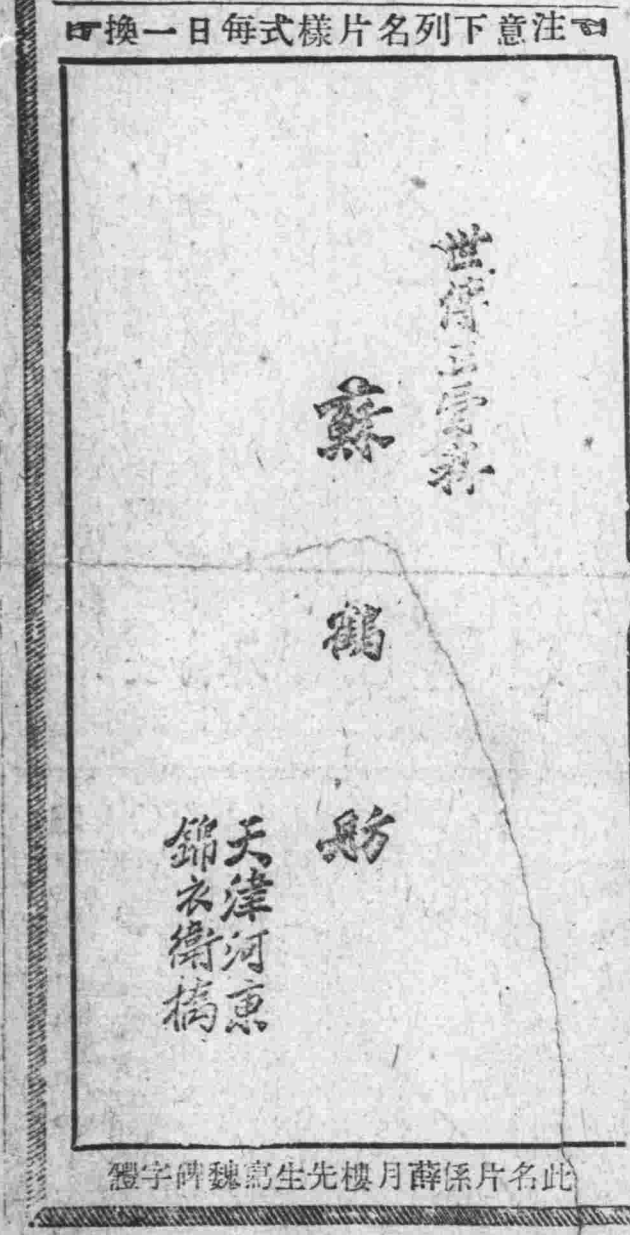 注意下列名片樣式每日一換
世傳正骨科
蘇鶴舫
天津河東
錦衣衛橋
此名片係薛月樓先生寫魏碑字體